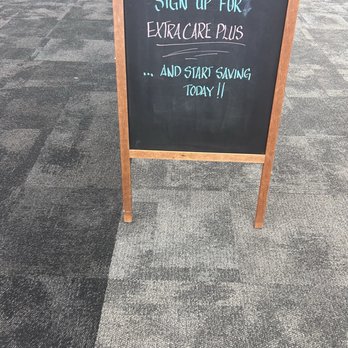 SIGN UP FOR
EXTRACARE PLUS
... AND START SAVING
TODAY!!